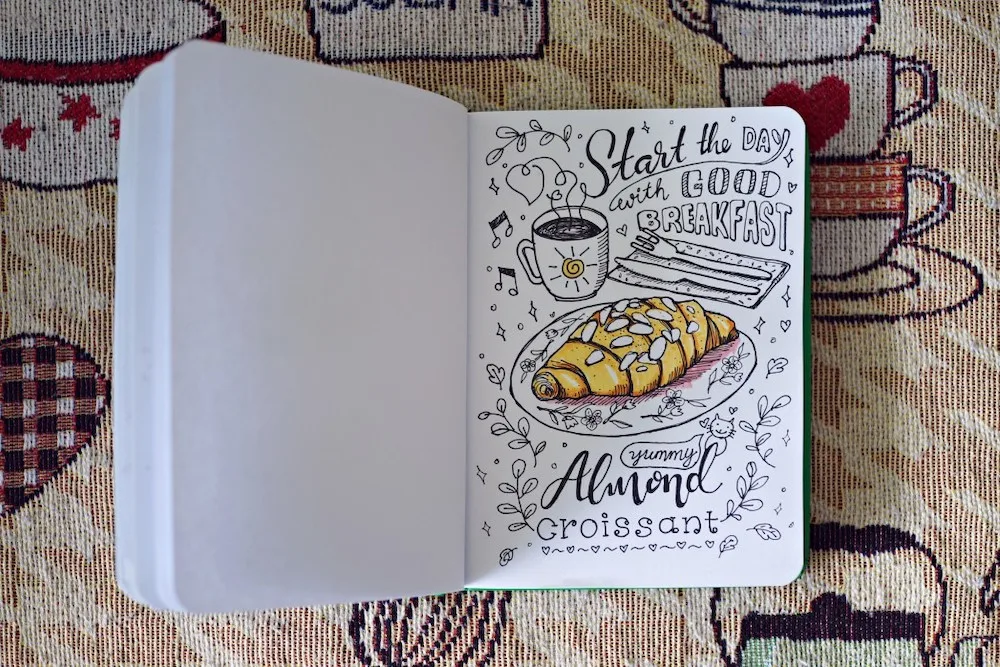 Start the DAY
with GOOD
BREAKFAST
yummy
Almond
croissant